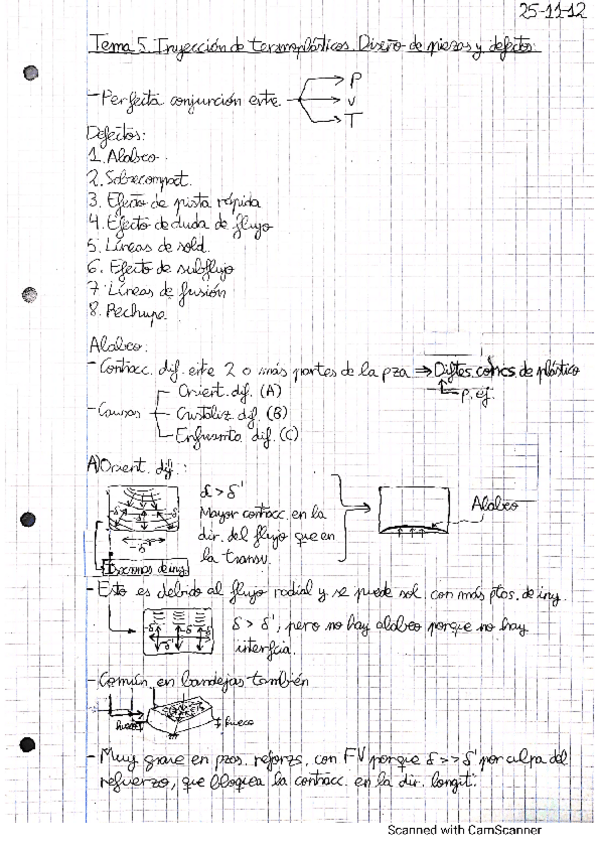 25-11-12
Tema 5. Inyección de termoplásticos. Diseño de piezas y defectos:
- Perfecta conjunción entre
P
V
T
Defectos:
1. Alabeo
2. Sobrecompact.
3. Efecto de pista rápida
4. Efecto de duda de flujo
5. Líneas de sold.
6. Efecto de subflujo
7. Líneas de fusión
8. Rechupe
Alabeo:
- Contracc. dif. entre 2 o más partes de la pza ⇒ Diftes. concs de plástico
p. ej.
- Causas
Orient. dif. (A)
Cristaliz. dif. (B)
Enfriamto. dif. (C)
A) Orient. dif.:
δ > δ'
Mayor contracc. en la
dir. del flujo que en
la transv.
Alabeo
- Esto es debido al flujo radial y se puede sol. con más ptos. de iny.
δ > δ', pero no hay alabeo porque no hay
interfcia.
- Común en bandejas también
hueco
hueco
- Muy grave en pzas. reforzs. con FV porque δ >> δ' por culpa del
refuerzo, que bloquea la contracc. en la dir. longit.
Scanned with CamScanner